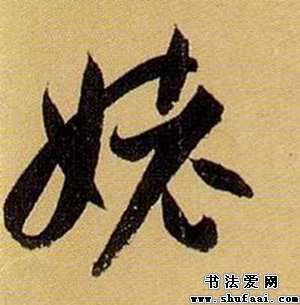 姥
书法爱网
www.shufaai.com